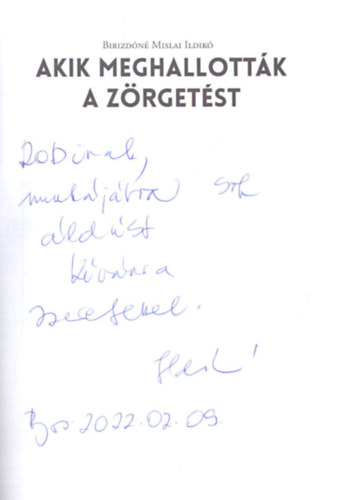 Bibizdóné Mislai Ildikó
AKIK MEGHALLOTTÁK
A ZÖRGETÉST
Robinak,
munkájára sok
áldást
kívánva
szeretettel.
2022.02.09.